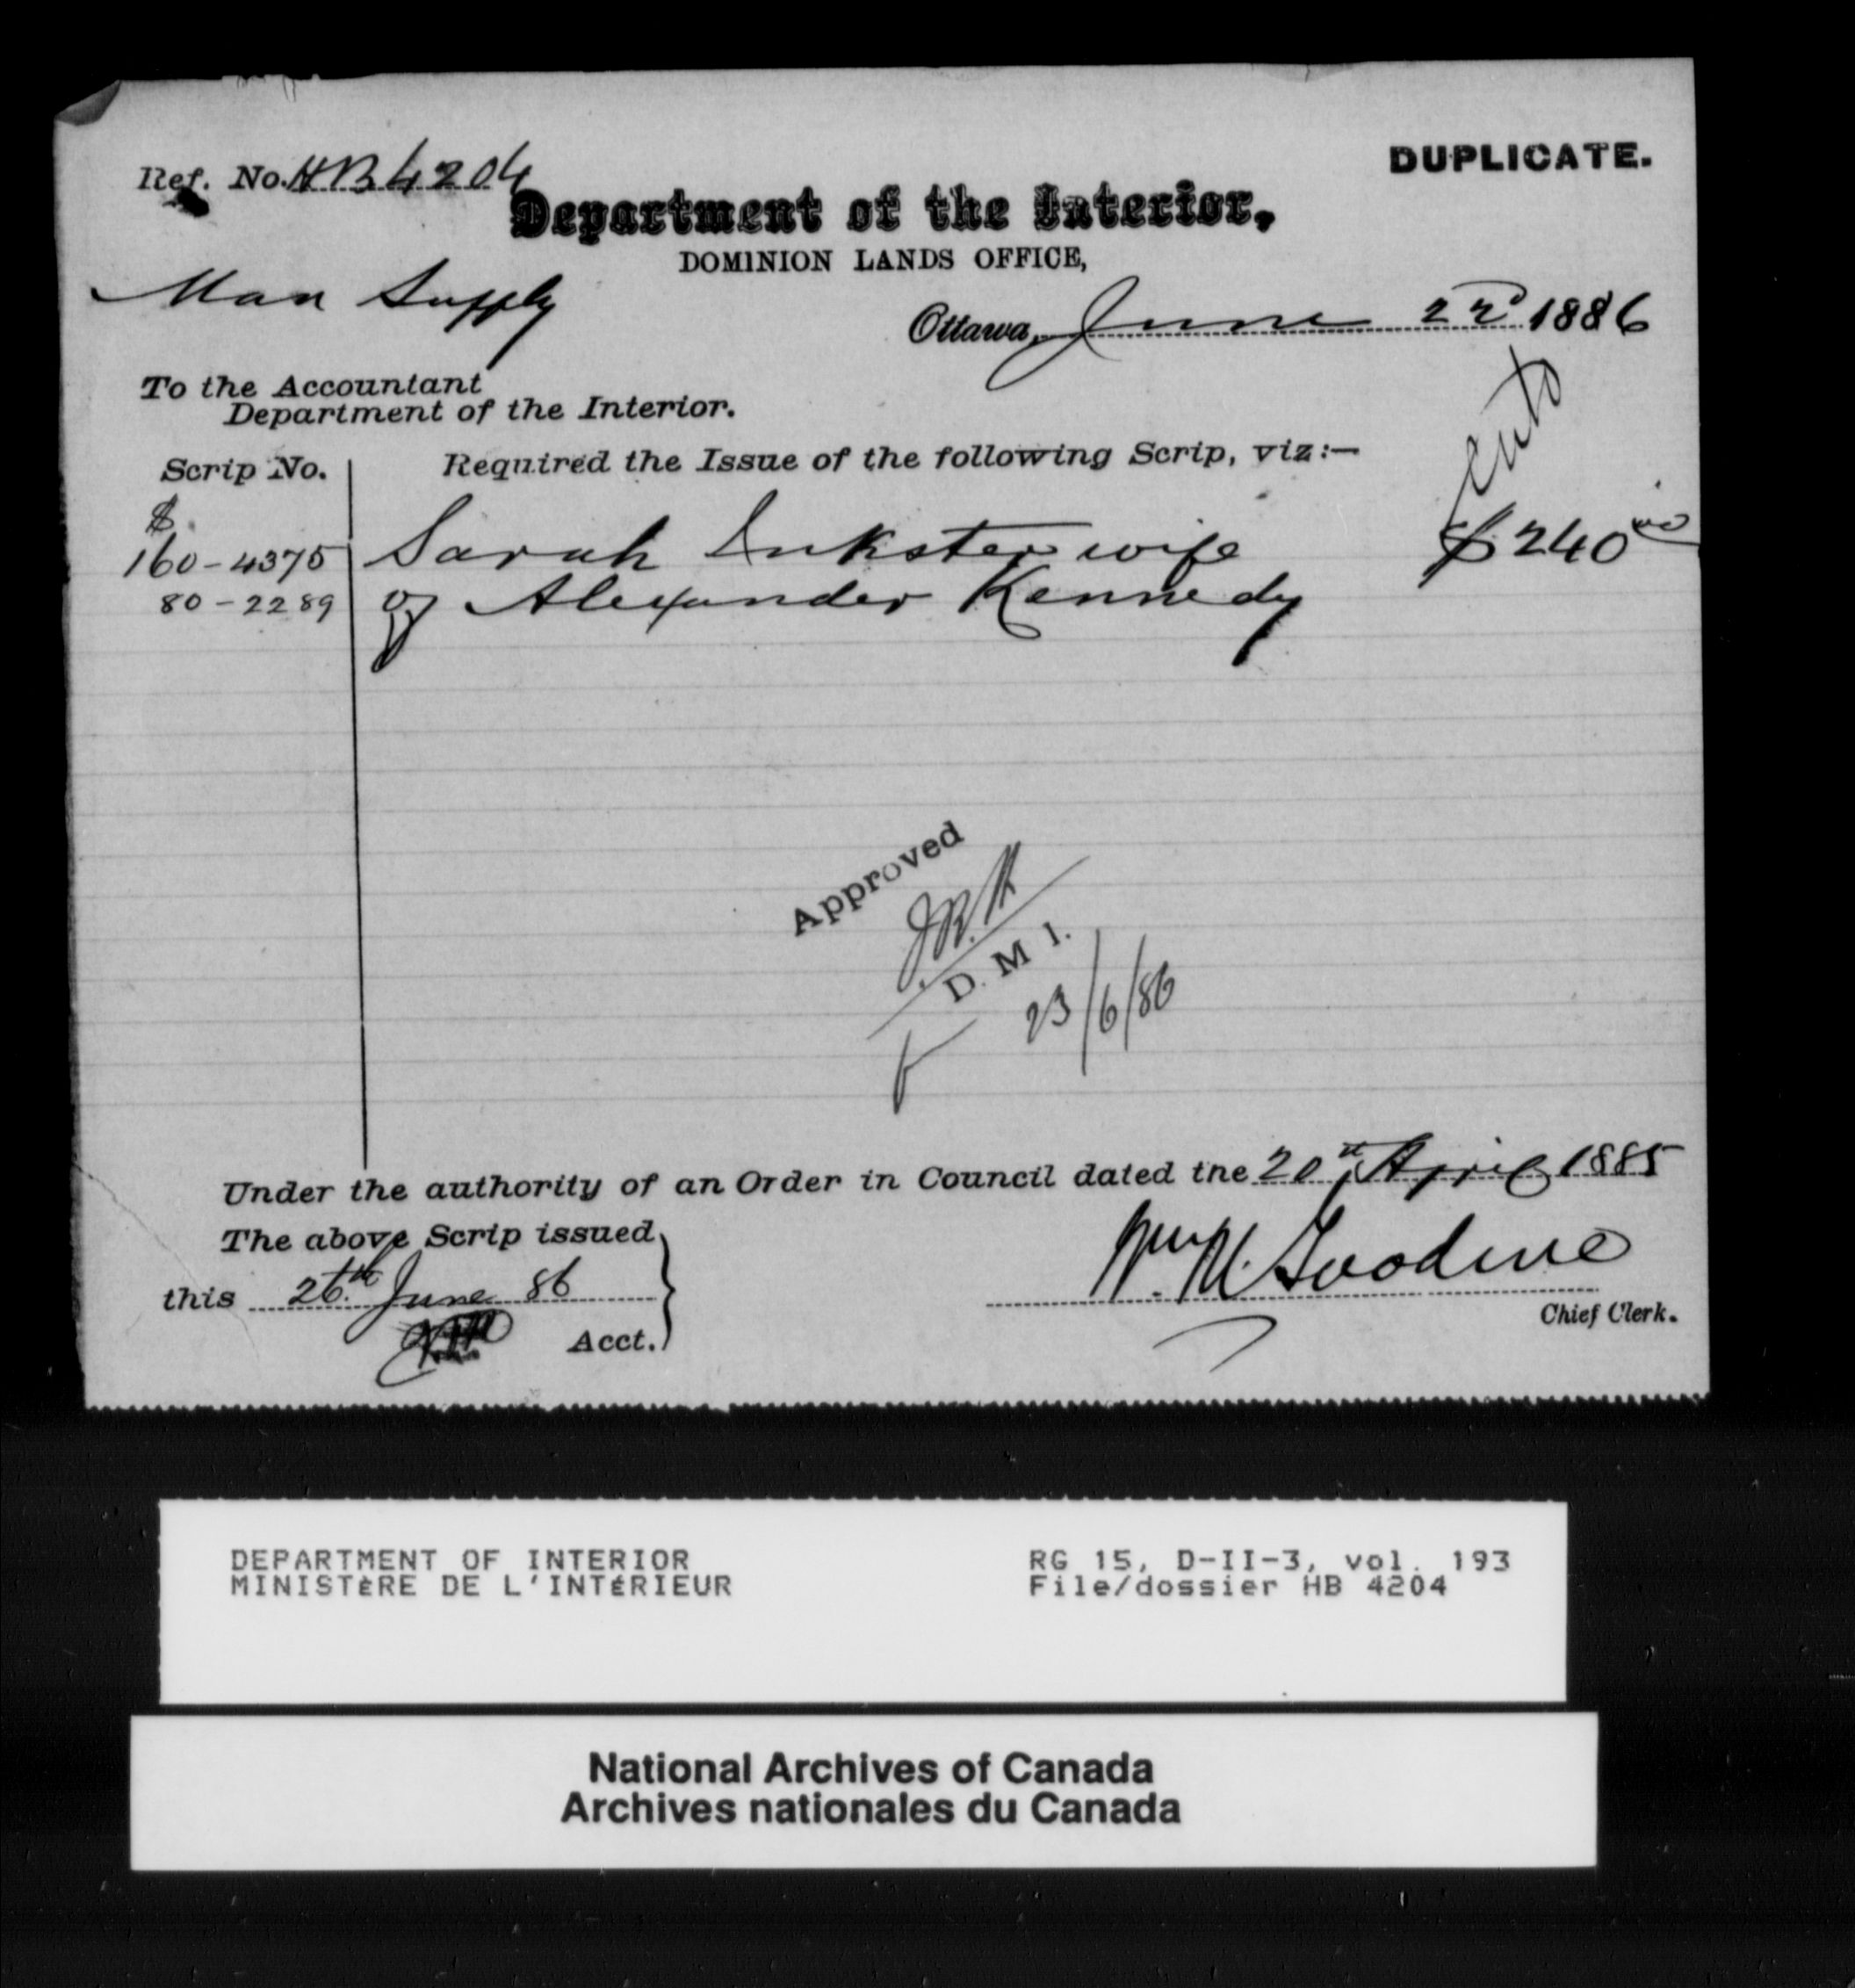 Ref. No. HB 4204
DUPLICATE.
Department of the Interior,
DOMINION LANDS OFFICE,
Man Supply
Ottawa, June 22d 1886
To the Accountant
Department of the Interior.
Scrip No.
Required the Issue of the following Scrip, viz:—
$
160-4375 Sarah Inkster wife $240 00
80-2289 of Alexander Kennedy
Approved
D. M I.
23/6/86
Under the authority of an Order in Council dated tne 20th April 1885
The above Scrip issued
this 26th June 86
Acct.
Wm M. Goodeve
Chief Clerk.
DEPARTMENT OF INTERIOR
MINISTÈRE DE L'INTÉRIEUR
RG 15, D-II-3, vol. 193
File/dossier HB 4204
National Archives of Canada
Archives nationales du Canada